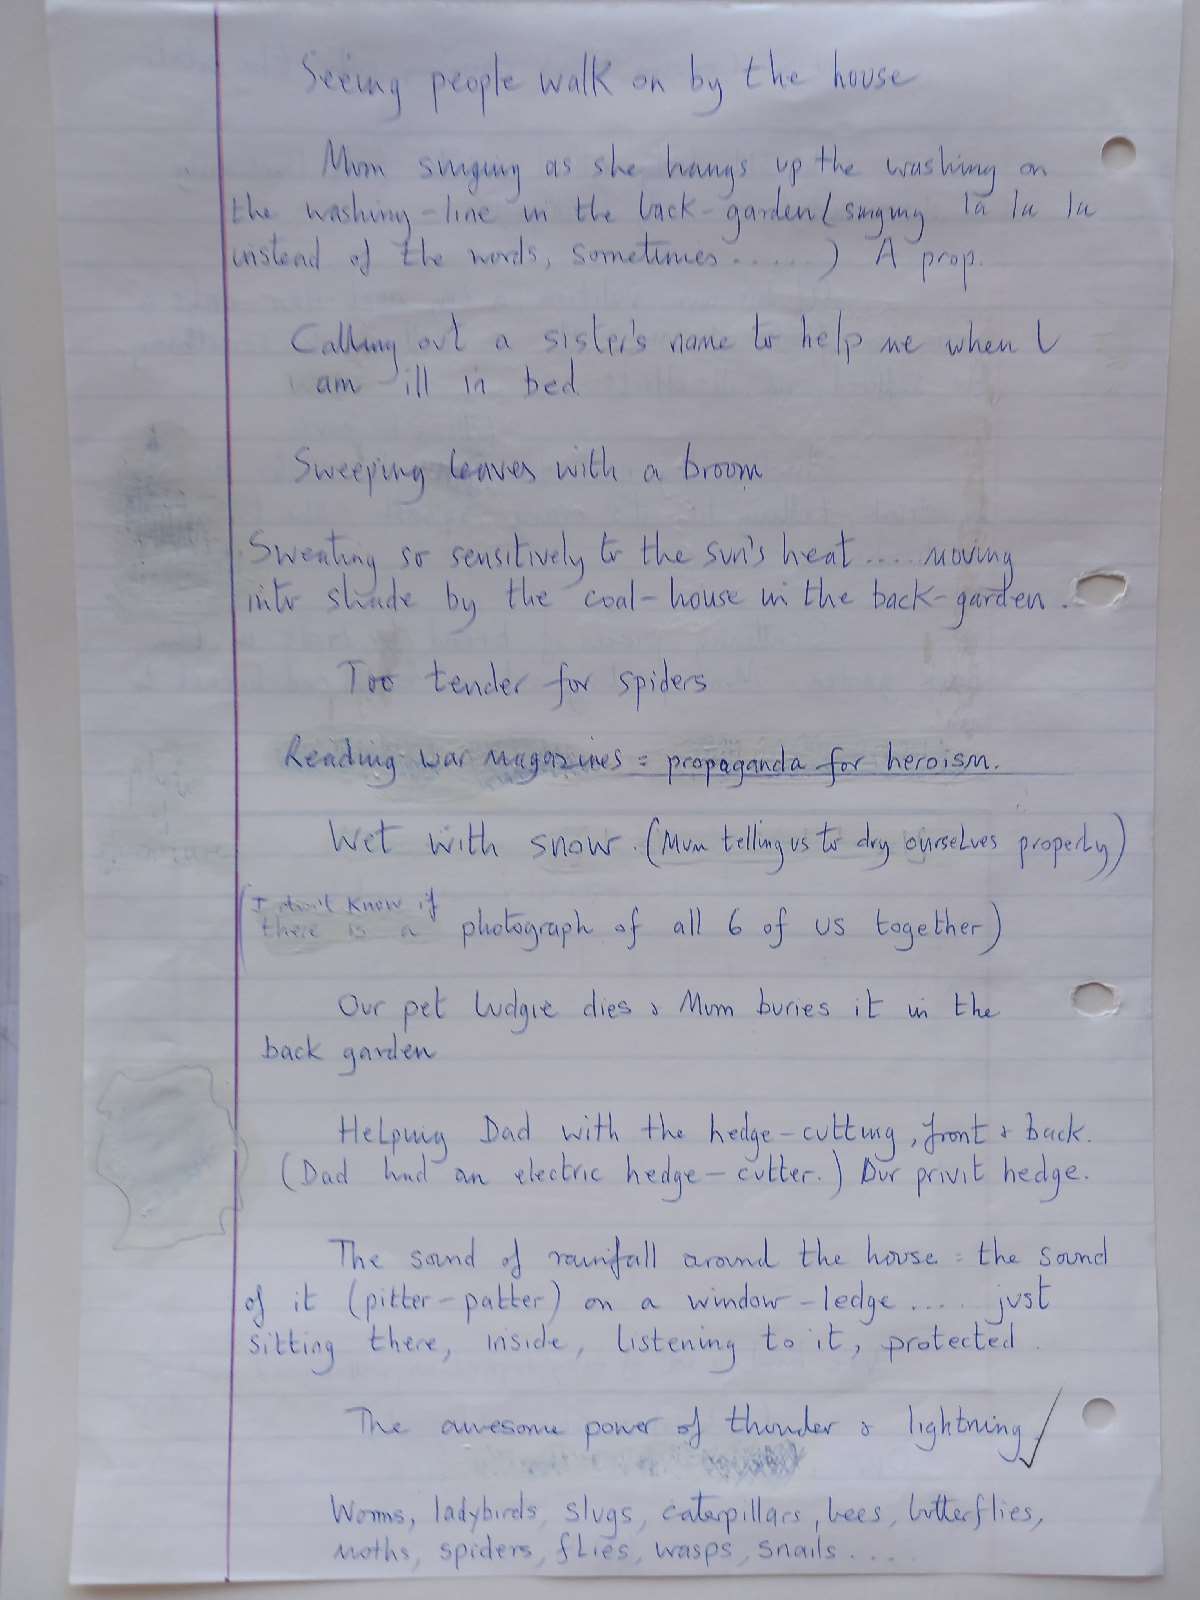 Seeing people walk on by the house
Mum singing as she hangs up the washing on
the washing-line in the back-garden (singing la la la
instead of the words, sometimes ......) A prop.
Calling out a sister's name to help me when I
am ill in bed
Sweeping leaves with a broom
Sweating so sensitively to the sun's heat .... moving
into shade by the coal-house in the back-garden.
Too tender for spiders
Reading war magazines = propaganda for heroism.
Wet with snow. (Mum telling us to dry ourselves properly)
(I don't know if
there is a photograph of all 6 of us together)
Our pet budgie dies & Mum buries it in the
back garden
Helping Dad with the hedge-cutting, front & back.
(Dad had an electric hedge-cutter.) Our privit hedge.
The sound of rainfall around the house = the sound
of it (pitter-patter) on a window-ledge .... just
sitting there, inside, listening to it, protected.
The awesome power of thunder & lightning.
Worms, ladybirds, slugs, caterpillars, bees, butterflies,
moths, spiders, flies, wasps, snails ....